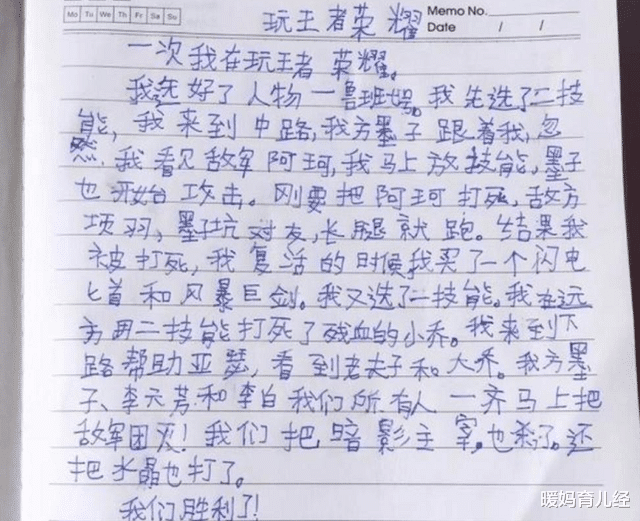 玩王者荣耀
Memo No.
Mo Tu We Th Fr Sa Su
Date / /
一次我在玩王者荣耀。
我选好了人物一鲁班号。我先选了二技
能,我来到中路,我方墨子跟着我,忽
然,我看见敌军阿珂,我马上放技能,墨子
也开始攻击。刚要把阿珂打死,敌方
项羽,墨子坑对友,长腿就跑。结果我
被打死,我复活的时候我买了一个闪电
匕首和风暴巨剑。我又选了二技能。我在远
方用二技能打死了残血的小乔。我来到下
路帮助亚瑟,看到老夫子和大乔。我方墨
子、李元芳和李白我们所有人一齐马上把
敌军团灭!我们把暗影主宰。也杀了。还
把水晶也打了。
我们胜利了!
暖妈育儿经